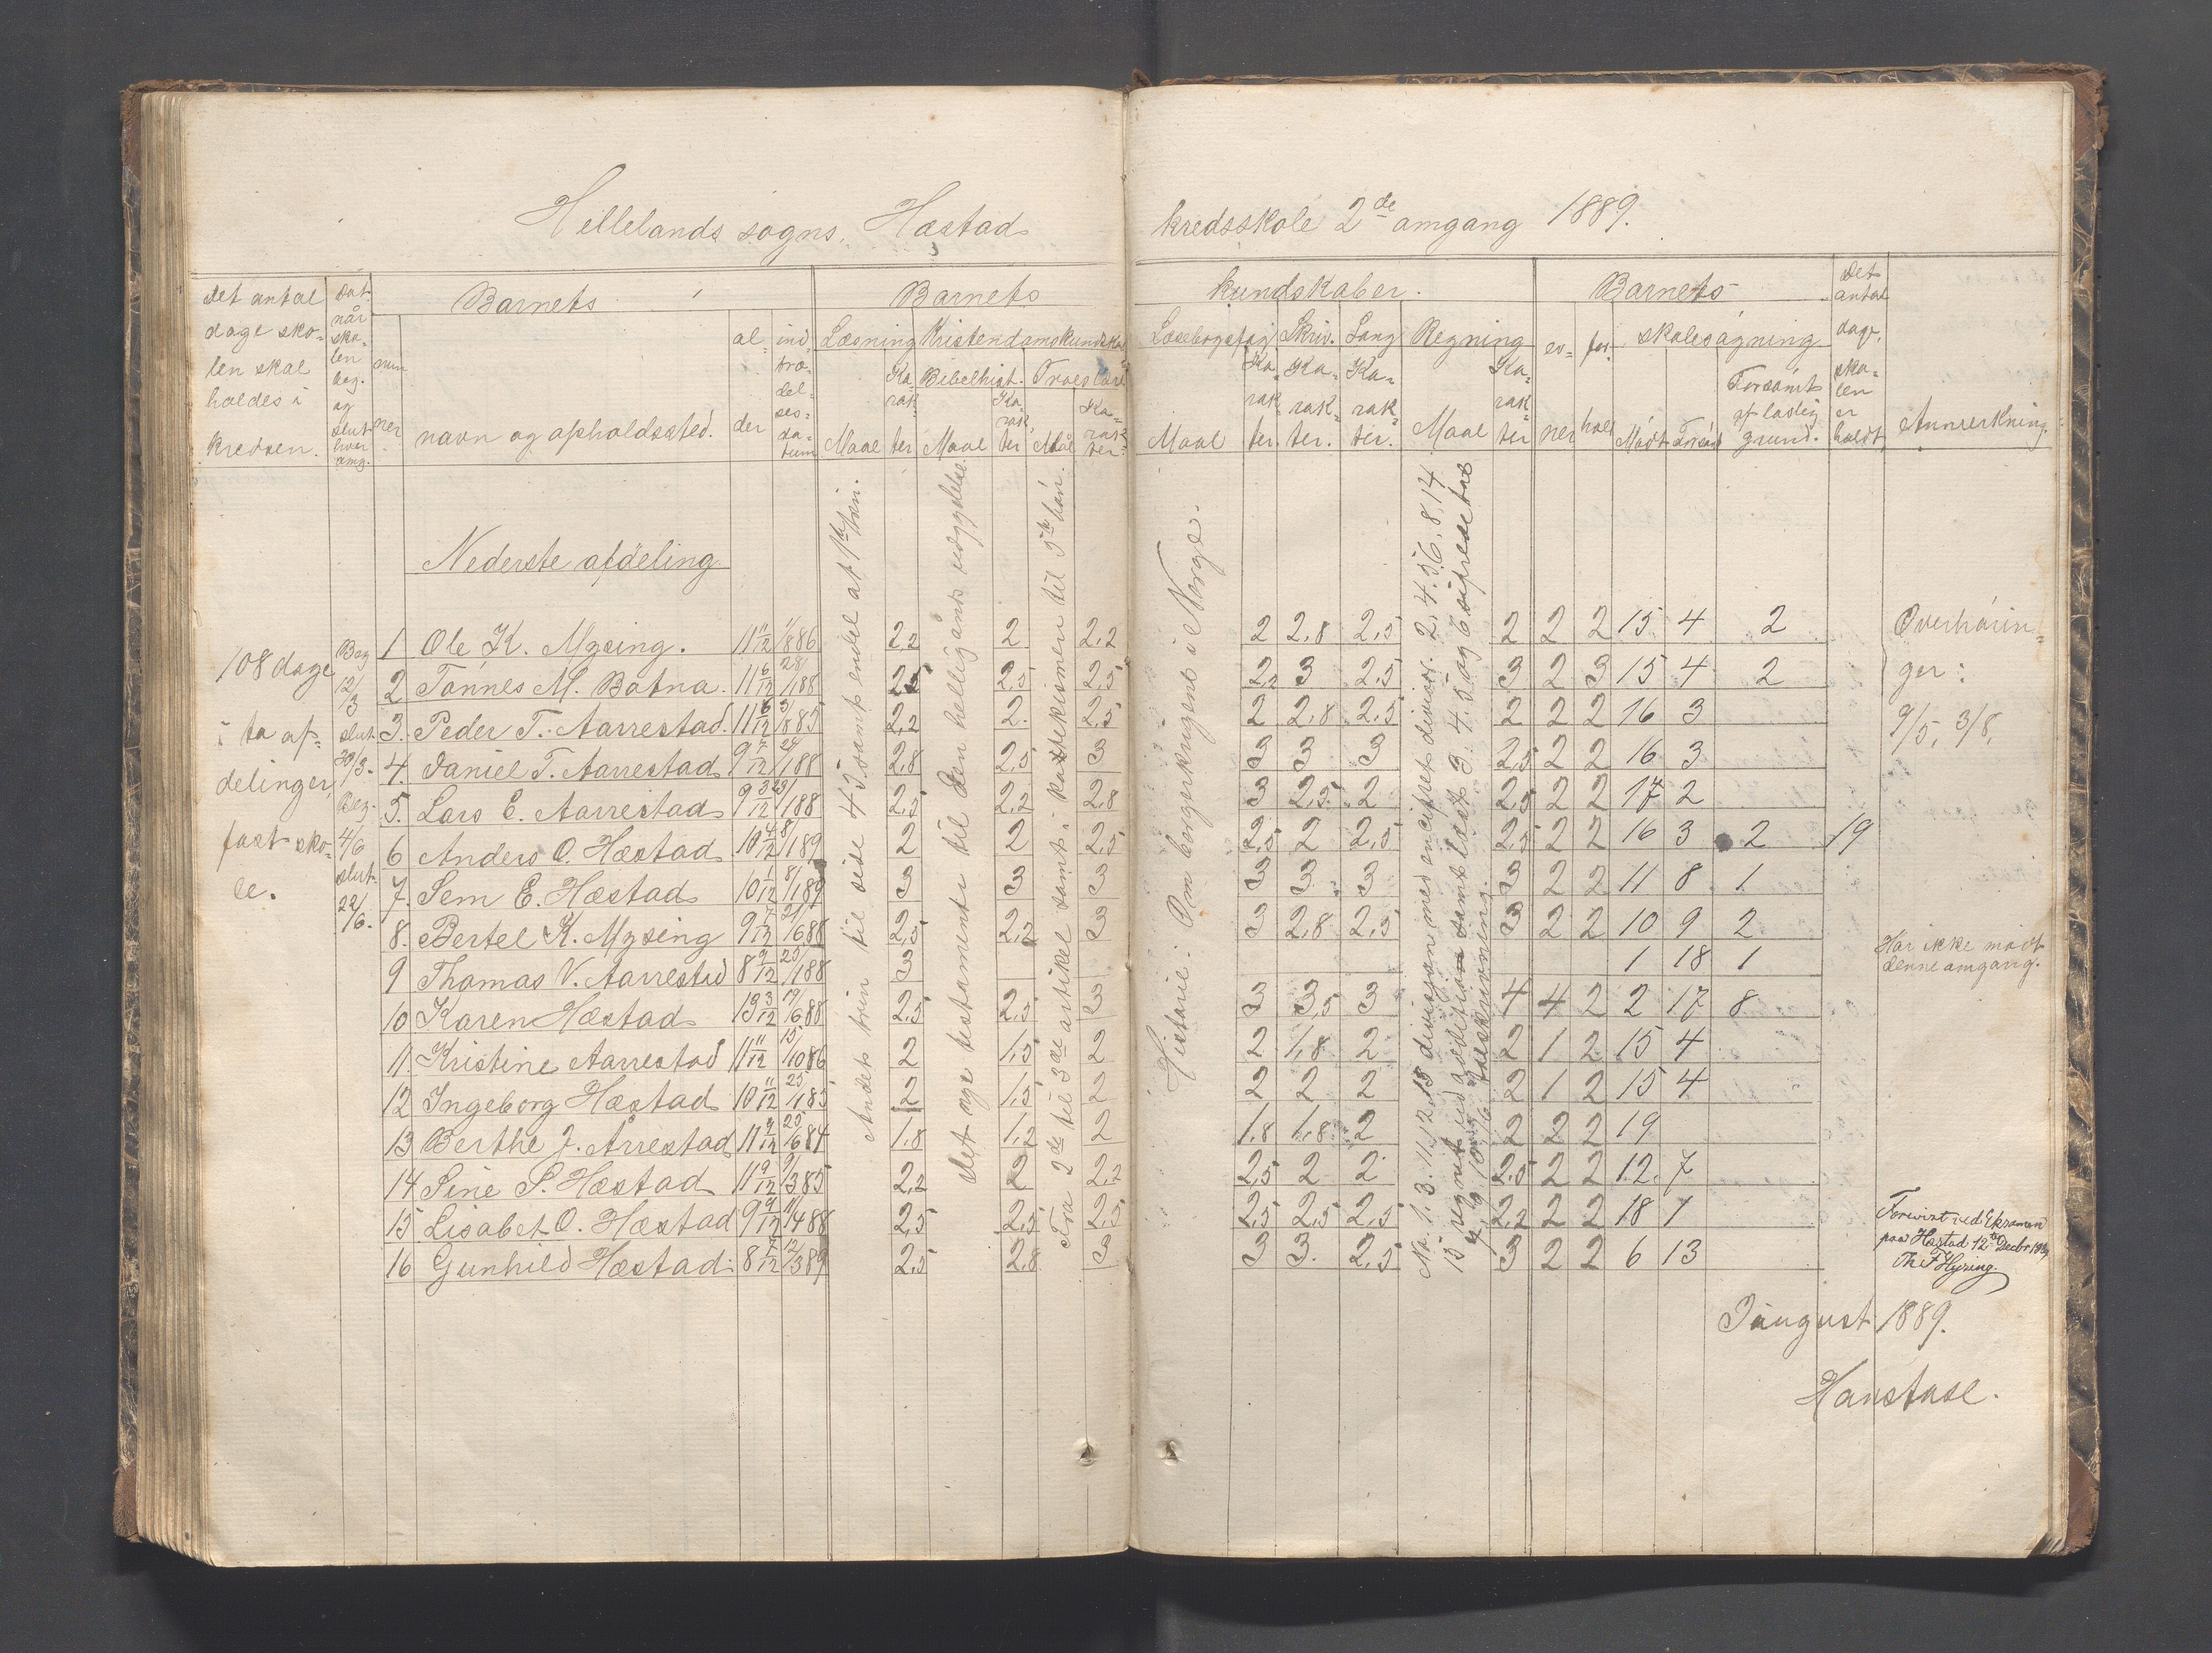 Hellelands sogns, Hæstad kredsskole 2de omgang 1889.
Det antal dage skolen skal holdes i kredsen.
Dat. når skolen beg. og slut hver omg.
Barnets
nummer
navn og opholdssted.
alder
indtrædelsesdatum
Barnets kundskaber.
Læsning
Maal
Karakter
Kristendomskundskab
Bibelhist.
Maal
Karakter
Troeslære
Mål
Karakter
Læsebogsfag
Maal
Karakter.
Skriv.
Karakter.
Sang
Karakter.
Regning
Maal
Karakter
Barnets
evner
forhold
skolesøgning
Mødt
Forsømt
Forsømt af lovlig grund.
Det antal dage, skolen er holdt
Anmerkning.
Nederste afdeling
108 dage
i to af-
delinger,
fast sko-
le.
Beg
12/3
slut
30/3.
Beg.
4/6
slut
22/6.
1 Ole K. Mysing. 11 11/12 1/886 2,2 2 2,2 2 2,8 2,5 2 2 2 15 4 2
2 Tønnes M. Botna. 11 6/12 28/188 2,5 2,5 2,5 2,2 3 2,5 3 2 3 15 4 2
3. Peder T. Aarrestad. 11 6/12 3/885 2,2 2. 2,5 2 2,8 2,5 2 2 2 16 3
4. Daniel T. Aarrestad 9 7/12 24/188 2,8 2,5 3 3 3 3 2,5 2 2 16 3
5. Lars E. Aarrestad 9 3/12 23/188 2,5 2,2 2,8 3 2,5 2 2,5 2 2 17 2
6 Anders O. Hæstad 10 4/12 8/189 2 2 2,5 2,5 2 2,5 2,5 2 2 16 3 2 19
7. Sem E. Hæstad 10 1/12 8/189 3 3 3 3 3 3 3 2 2 11 8 1
8. Bertel K. Mysing 9 7/12 21/688 2,5 2,2 3 3 2,8 2,5 3 2 2 10 9 2
9 Thomas V. Aarrestad 8 9/12 23/188 3 1 18 1
10 Karen Hæstad 13 3/12 19/688 2,5 2,5 3 3 3,5 3 4 4 2 2 17 8
11. Kristine Aarrestad 11 11/12 15/1086 2 1,5 2 2 1,8 2 2 1 2 15 4
12 Ingeborg Hæstad 10 11/12 25/185 2 1,5 2 2 2 2 2 1 2 15 4
13 Berthe J. Årrestad 11 9/12 25/684 1,8 1,2 2 1,8 1,8 2 2 2 2 19
14 Sine S. Hæstad 11 9/12 9/385 2,2 2 2,2 2,5 2 2 2,5 2 2 12. 7
15 Lisabet O. Hæstad 9 9/12 11/488 2,5 2,5 2,5 2,5 2,5 2,5 2,2 2 2 18 1
16 Gunhild Hæstad. 8 7/12 12/389 2,5 2,8 3 3 3. 2,5 3 2 2 6 13
Andet trin til side 45 samt endel af 1ste trin.
Det nye testamente til Den hellig ånds udgydelse
Fra 2de til 3de artikel samt i katekismen til 5te bøn.
Historie: Om borgerkrigene i Norge.
No. 1. 3. 11. 12. 13 division med encifret divisor. 2. 4. 5. 6. 8. 14
15 regnet ud addition samt læst 3. 4. 5 og 6 cifrede tal
7, 9, 10 og 16 talskrivning.
Overhørin-
ger:
9/5, 3/8,
Har ikke mødt
denne omgang.
Forevist ved Eksamen
paa Hæstad 12te Decbr 1889
Th. F. Hysing.
I august 1889.
Hanstase.